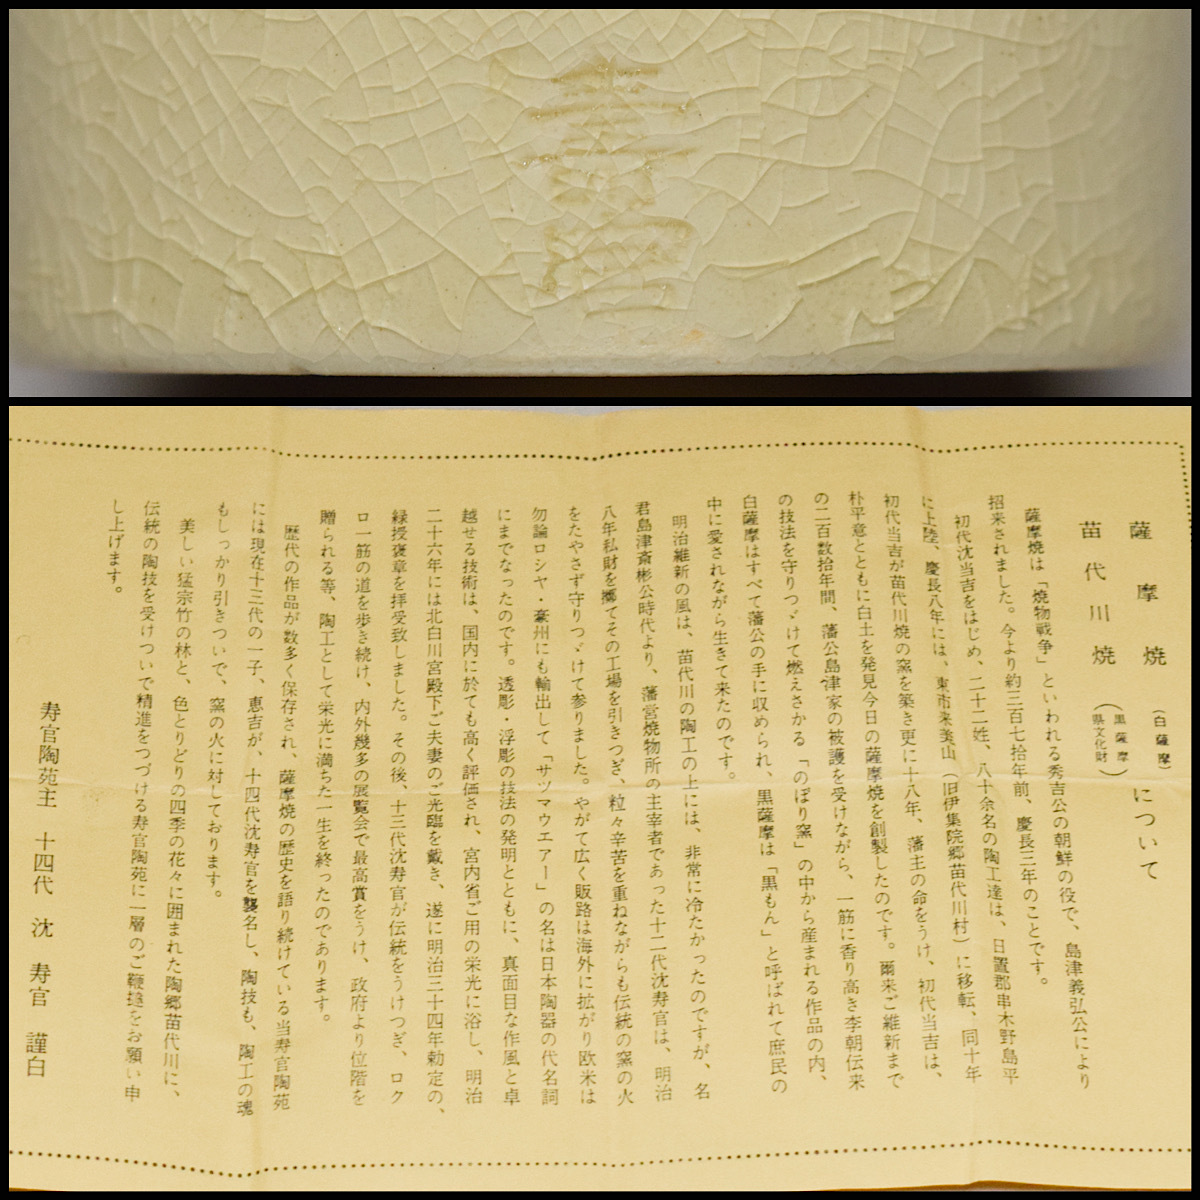 寿官
薩摩焼(白薩摩)
苗代川焼(黒薩摩 県文化財)について
薩摩焼は「焼物戦争」といわれる秀吉公の朝鮮の役で、島津義弘公により
招来されました。今より約三百七拾年前、慶長三年のことです。
初代沈当吉をはじめ、二十二姓、八十余名の陶工達は、日置郡串木野島平
に上陸、慶長八年には、東市来美山(旧伊集院郷苗代川村)に移転、同十年
初代当吉が苗代川焼の窯を築き更に十八年、藩主の命をうけ、初代当吉は、
朴平意とともに白土を発見今日の薩摩焼を創製したのです。爾来ご維新まで
の二百数拾年間、藩公島津家の被護を受けながら、一筋に香り高き李朝伝来
の技法を守りつゞけて燃えさかる「のぼり窯」の中から産まれる作品の内、
白薩摩はすべて藩公の手に収められ、黒薩摩は「黒もん」と呼ばれて庶民の
中に愛されながら生きて来たのです。
明治維新の風は、苗代川の陶工の上には、非常に冷たかったのですが、名
君島津斎彬公時代より、藩営焼物所の主宰者であった十二代沈寿官は、明治
八年私財を擲てその工場を引きつぎ、粒々辛苦を重ねながらも伝統の窯の火
をたやさず守りつゞけて参りました。やがて広く販路は海外に拡がり欧米は
勿論ロシヤ・豪州にも輸出して「サツマウエアー」の名は日本陶器の代名詞
にまでなったのです。透彫・浮彫の技法の発明とともに、真面目な作風と卓
越せる技術は、国内に於ても高く評価され、宮内省ご用の栄光に浴し、明治
二十六年には北白川宮殿下ご夫妻のご光臨を戴き、遂に明治三十四年勅定の、
緑授褒章を拝受致しました。その後、十三代沈寿官が伝統をうけつぎ、ロク
ロ一筋の道を歩き続け、内外幾多の展覧会で最高賞をうけ、政府より位階を
贈られる等、陶工として栄光に満ちた一生を終ったのであります。
歴代の作品が数多く保存され、薩摩焼の歴史を語り続けている当寿官陶苑
には現在十三代の一子、恵吉が、十四代沈寿官を襲名し、陶技も、陶工の魂
もしっかり引きついで、窯の火に対しております。
美しい猛宗竹の林と、色とりどりの四季の花々に囲まれた陶郷苗代川に、
伝統の陶技を受けついで精進をつづける寿官陶苑に一層のご鞭撻をお願い申
し上げます。
寿官陶苑主 十四代 沈 寿官 謹白